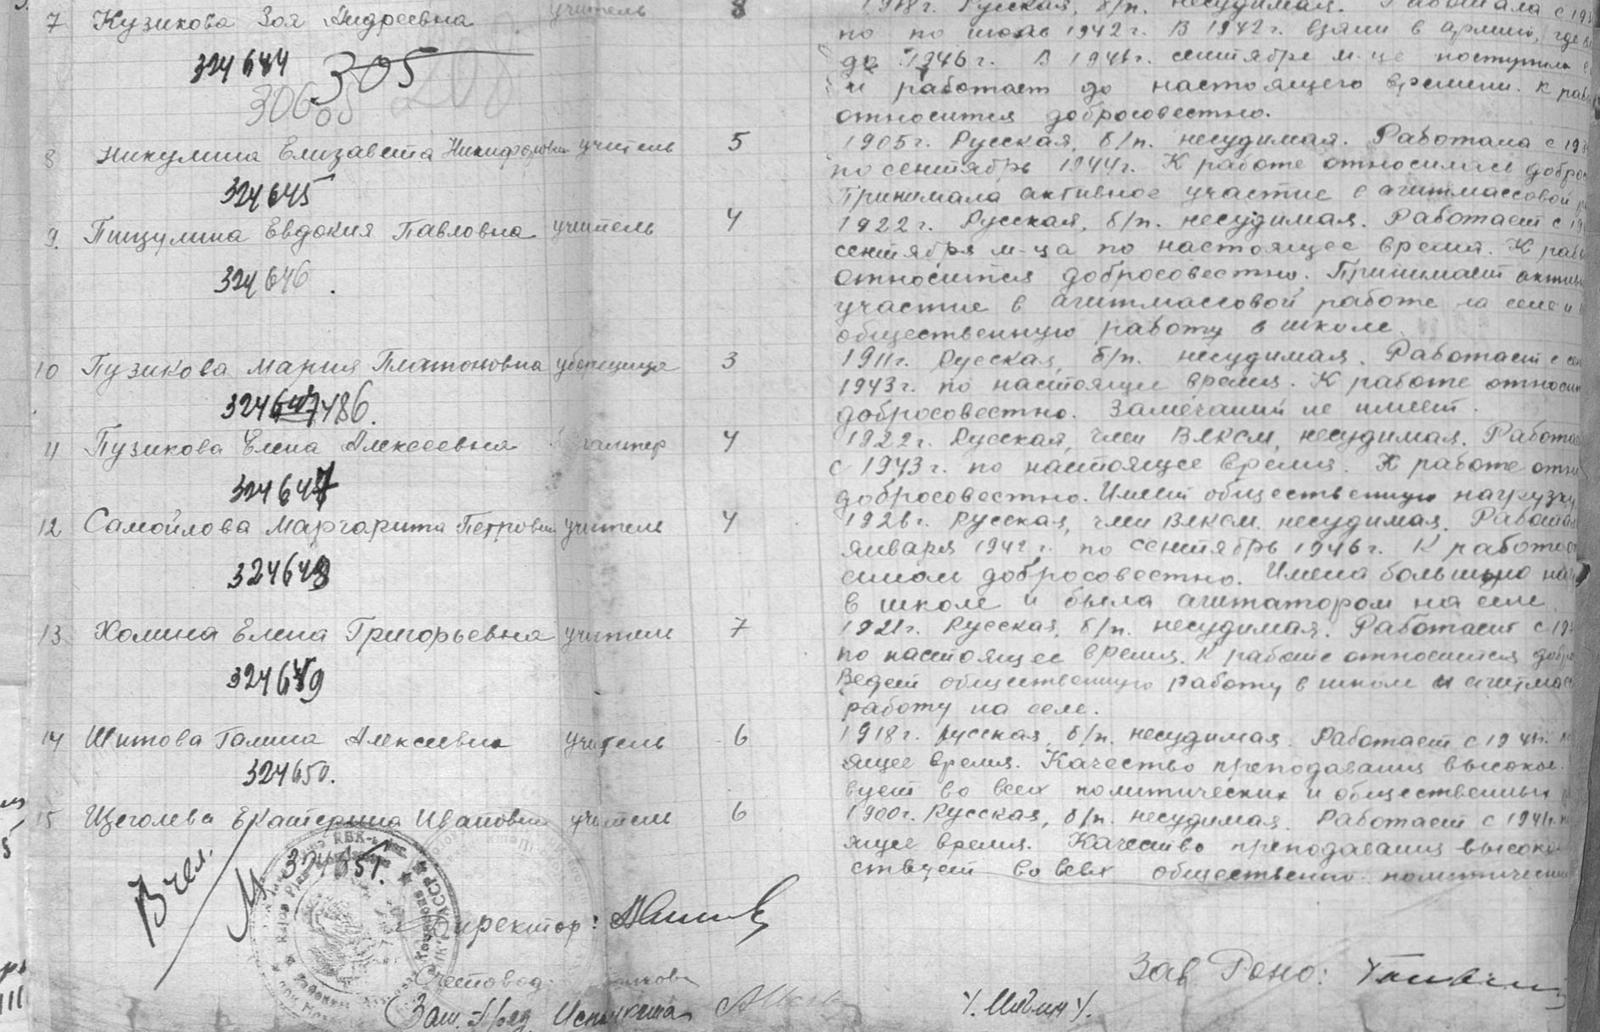 7 Кузикова Зоя Андреевна учитель 8 1918г. Русская, б/п. несудимая. Работала с 19
по июль 1942г. В 1942г. взяли в армию, где
до 1946г. В 1946г. сентябре м-це поступила
324644 305
и работает до настоящего времени. К раб
306
относится добросовестно.
8 Никулина Елизавета Никифоровна учитель 5 1905г. Русская, б/п. несудимая. Работала с 19
по сентябрь 1944г. К работе относилась добро
324645
Принимала активное участие в агитмассовой
9. Пицулина Евдокия Павловна учитель 4 1922г. Русская, б/п. несудимая. Работает с
сентября м-ца по настоящее время. К раб
324646.
относится добросовестно. Принимает актив
участие в агитмассовой работе на селе и
общественную работу в школе.
10 Пузикова Мария Платоновна уборщица 3 1911г. Русская, б/п. несудимая. Работает с
1943г. по настоящее время. К работе относи
324647486.
добросовестно. Замечаний не имеет.
11 Пузикова Елена Алексеевна 4 1922г. Русская, член ВЛКСМ, несудимая. Работа
с 1943г. по настоящее время. К работе отно
324647
добросовестно. Имеет общественную нагрузку
12 Самойлова Маргарита Петровна учитель 4 1926г. Русская, член ВЛКСМ. несудимая. Работал
января 1942г. по сентябрь 1946г. К работе от
324648
добросовестно. Имела большую
в школе и была агитатором на селе.
13 Холина Елена Григорьевна учитель 7 1921г. Русская, б/п. несудимая. Работает с 19
по настоящее время. К работе относится добро
324649
Ведет общественную работу в школе и агитмас
работу на селе.
14 Шитова Галина Алексеевна учитель 6 1918г. Русская, б/п. несудимая. Работает с 1941г.
ящее время. Качество преподавания высокое.
324650.
вует во всех политических и общественных
15 Щеголева Екатерина Ивановна учитель 6 1900г. Русская, б/п. несудимая. Работает с 1941г.
ящее время. Качество преподавания высоко
324651.
ствует во всех общественно политических
Директор:
Зав. Роно:
Счетовод
Зам. Пред. Исполкома